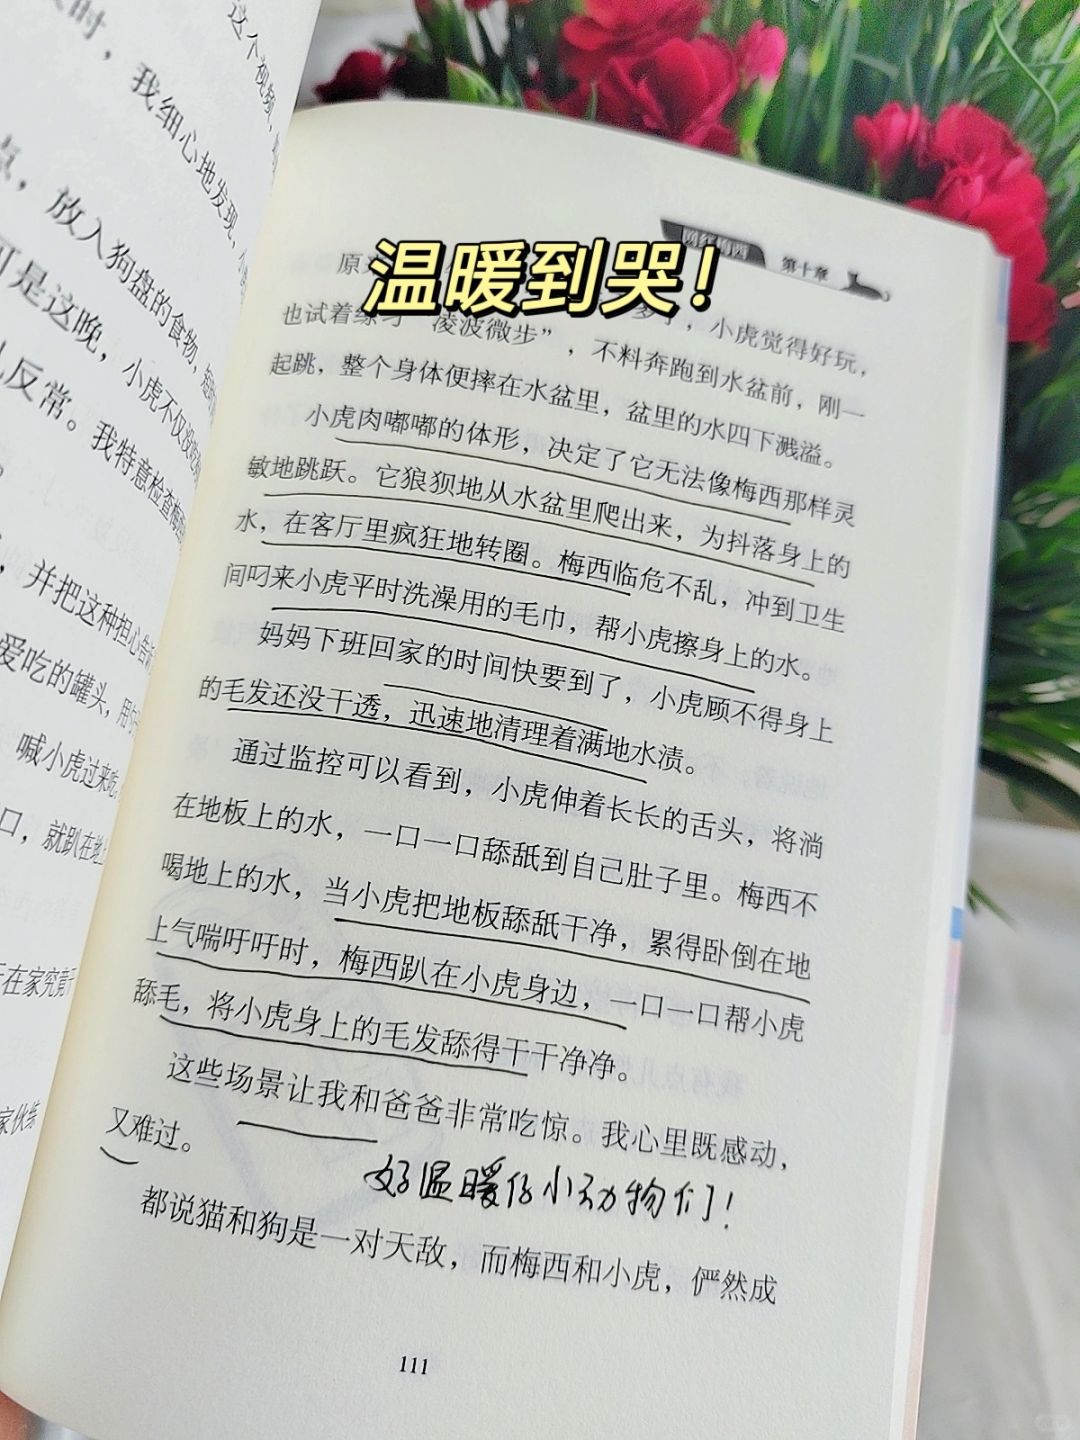 这个视频,
时,我细心地发现,小
点,放入狗盘的食物,
可是这晚,小虎不仅没吃
反常。我特意检查梅
,并把这种担心告
爱吃的罐头,用
喊小虎过来吃,
口,就趴在地
在家究竟
家伙练
温暖到哭!
网红梅西 第十章
原
多了,小虎觉得好玩,
也试着练习“凌波微步”,不料奔跑到水盆前,刚一
起跳,整个身体便摔在水盆里,盆里的水四下溅溢。
小虎肉嘟嘟的体形,决定了它无法像梅西那样灵
敏地跳跃。它狼狈地从水盆里爬出来,为抖落身上的
水,在客厅里疯狂地转圈。梅西临危不乱,冲到卫生
间叼来小虎平时洗澡用的毛巾,帮小虎擦身上的水。
妈妈下班回家的时间快要到了,小虎顾不得身上
的毛发还没干透,迅速地清理着满地水渍。
通过监控可以看到,小虎伸着长长的舌头,将淌
在地板上的水,一口一口舔舐到自己肚子里。梅西不
喝地上的水,当小虎把地板舔舐干净,累得卧倒在地
上气喘吁吁时,梅西趴在小虎身边,一口一口帮小虎
舔毛,将小虎身上的毛发舔得干干净净。
这些场景让我和爸爸非常吃惊。我心里既感动,
又难过。
好温暖仔小动物们!
都说猫和狗是一对天敌,而梅西和小虎,俨然成
111